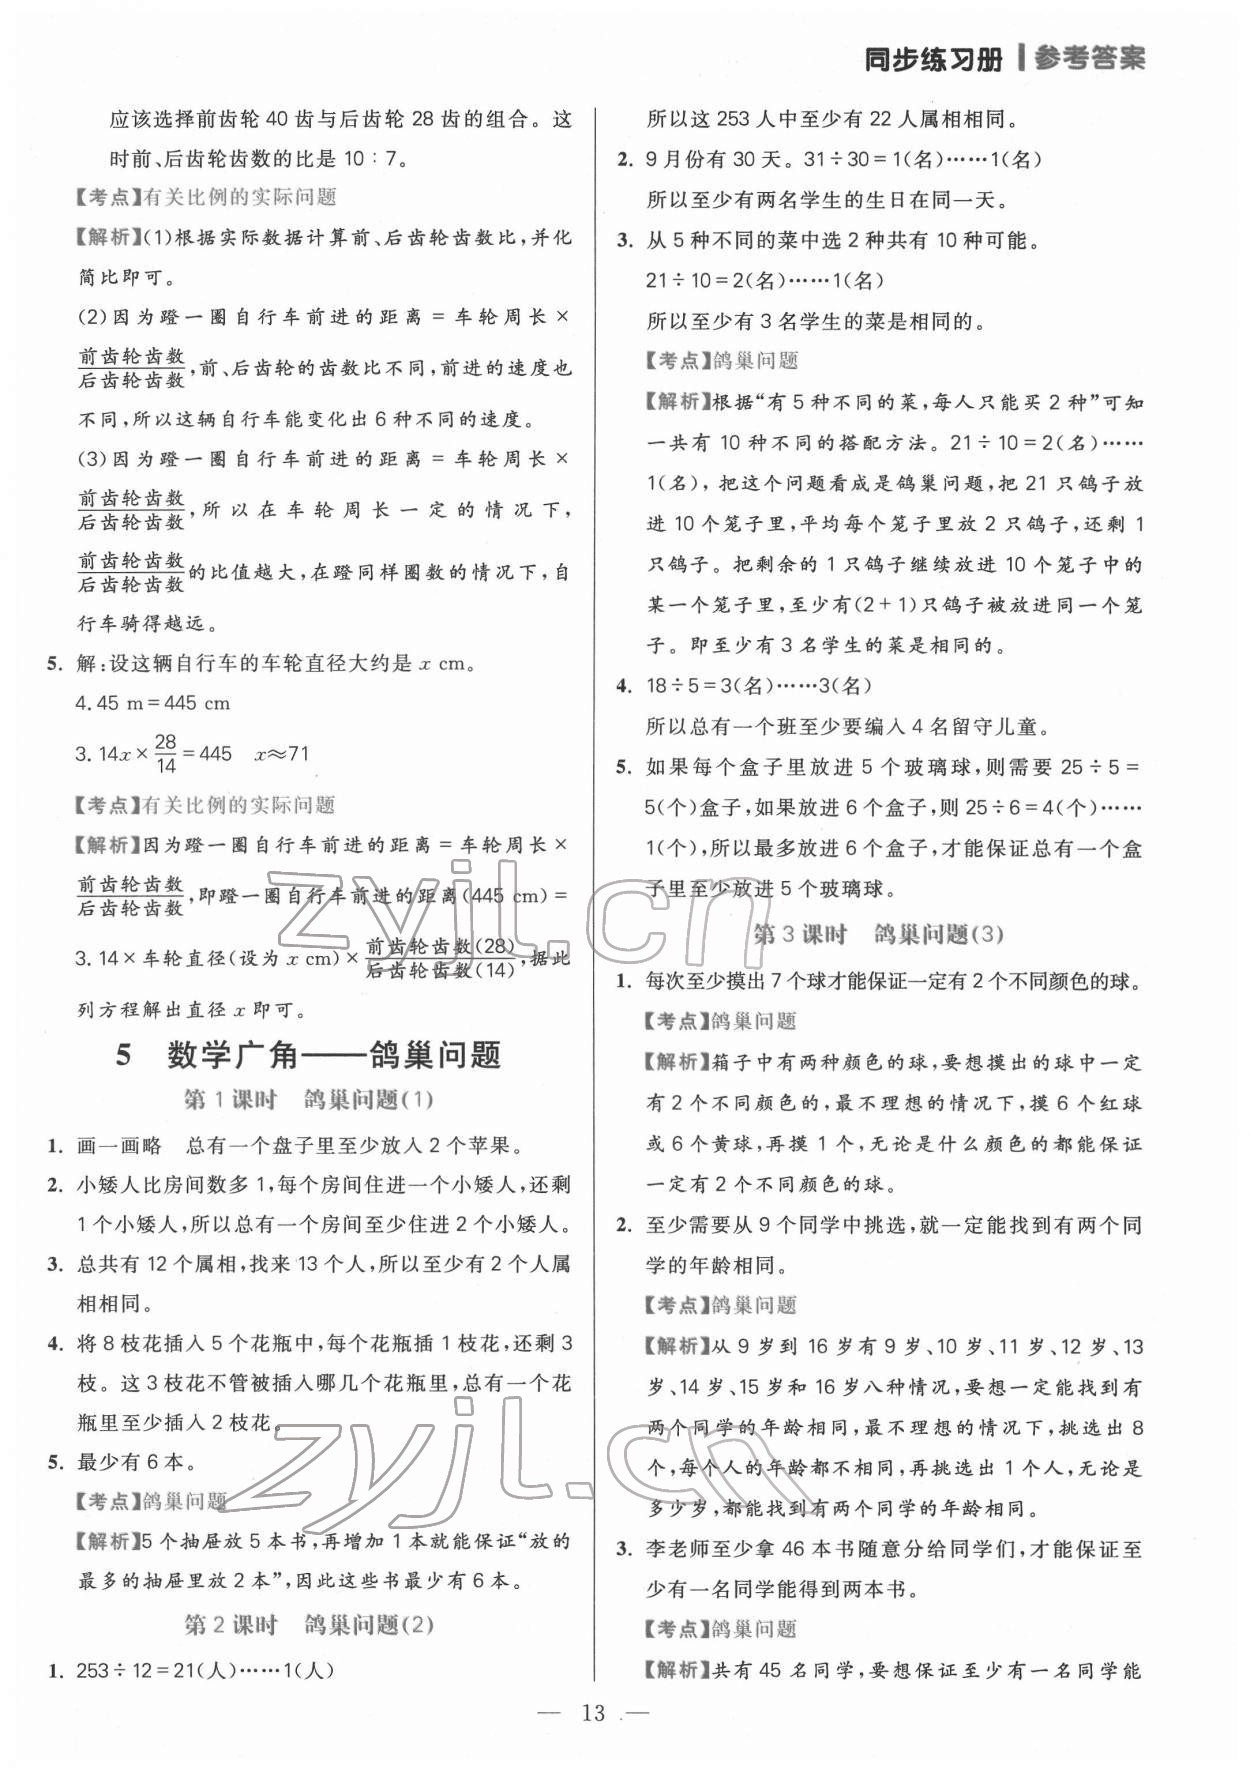 同步练习册 | 参考答案
应该选择前齿轮 40 齿与后齿轮 28 齿的组合。这
时前、后齿轮齿数的比是 10∶7。
【考点】有关比例的实际问题
【解析】(1)根据实际数据计算前、后齿轮齿数比,并化
简比即可。
(2)因为蹬一圈自行车前进的距离=车轮周长×
前齿轮齿数/后齿轮齿数,前、后齿轮的齿数比不同,前进的速度也
不同,所以这辆自行车能变化出 6 种不同的速度。
(3)因为蹬一圈自行车前进的距离=车轮周长×
前齿轮齿数/后齿轮齿数,所以在车轮周长一定的情况下,
前齿轮齿数/后齿轮齿数的比值越大,在蹬同样圈数的情况下,自
行车骑得越远。
5. 解:设这辆自行车的车轮直径大约是 x cm。
4.45 m=445 cm
3.14x×28/14=445 x≈71
【考点】有关比例的实际问题
【解析】因为蹬一圈自行车前进的距离=车轮周长×
前齿轮齿数/后齿轮齿数,即蹬一圈自行车前进的距离(445 cm)=
3.14×车轮直径(设为 x cm)×前齿轮齿数(28)/后齿轮齿数(14),据此
列方程解出直径 x 即可。
5 数学广角——鸽巢问题
第 1 课时 鸽巢问题(1)
1. 画一画略 总有一个盘子里至少放入 2 个苹果。
2. 小矮人比房间数多 1,每个房间住进一个小矮人,还剩
1 个小矮人,所以总有一个房间至少住进 2 个小矮人。
3. 总共有 12 个属相,找来 13 个人,所以至少有 2 个人属
相相同。
4. 将 8 枝花插入 5 个花瓶中,每个花瓶插 1 枝花,还剩 3
枝。这 3 枝花不管被插入哪几个花瓶里,总有一个花
瓶里至少插入 2 枝花。
5. 最少有 6 本。
【考点】鸽巢问题
【解析】5 个抽屉放 5 本书,再增加 1 本就能保证“放的
最多的抽屉里放 2 本”,因此这些书最少有 6 本。
第 2 课时 鸽巢问题(2)
1. 253÷12=21(人)……1(人)
所以这 253 人中至少有 22 人属相相同。
2. 9 月份有 30 天。31÷30=1(名)……1(名)
所以至少有两名学生的生日在同一天。
3. 从 5 种不同的菜中选 2 种共有 10 种可能。
21÷10=2(名)……1(名)
所以至少有 3 名学生的菜是相同的。
【考点】鸽巢问题
【解析】根据“有 5 种不同的菜,每人只能买 2 种”可知
一共有 10 种不同的搭配方法。21÷10=2(名)……
1(名),把这个问题看成是鸽巢问题,把 21 只鸽子放
进 10 个笼子里,平均每个笼子里放 2 只鸽子,还剩 1
只鸽子。把剩余的 1 只鸽子继续放进 10 个笼子中的
某一个笼子里,至少有(2+1)只鸽子被放进同一个笼
子。即至少有 3 名学生的菜是相同的。
4. 18÷5=3(名)……3(名)
所以总有一个班至少要编入 4 名留守儿童。
5. 如果每个盒子里放进 5 个玻璃球,则需要 25÷5=
5(个)盒子,如果放进 6 个盒子,则 25÷6=4(个)……
1(个),所以最多放进 6 个盒子,才能保证总有一个盒
子里至少放进 5 个玻璃球。
第 3 课时 鸽巢问题(3)
1. 每次至少摸出 7 个球才能保证一定有 2 个不同颜色的球。
【考点】鸽巢问题
【解析】箱子中有两种颜色的球,要想摸出的球中一定
有 2 个不同颜色的,最不理想的情况下,摸 6 个红球
或 6 个黄球,再摸 1 个,无论是什么颜色的都能保证
一定有 2 个不同颜色的球。
2. 至少需要从 9 个同学中挑选,就一定能找到有两个同
学的年龄相同。
【考点】鸽巢问题
【解析】从 9 岁到 16 岁有 9 岁、10 岁、11 岁、12 岁、13
岁、14 岁、15 岁和 16 岁八种情况,要想一定能找出有
两个同学的年龄相同,最不理想的情况下,挑选出 8
个,每个人的年龄都不相同,再挑选出 1 个人,无论是
多少岁,都能找出有两个同学的年龄相同。
3. 李老师至少拿 46 本书随意分给同学们,才能保证至
少有一名同学能得到两本书。
【考点】鸽巢问题
【解析】共有 45 名同学,要想保证至少有一名同学能
— 13 —
zyjl.cn
zyjl.cn